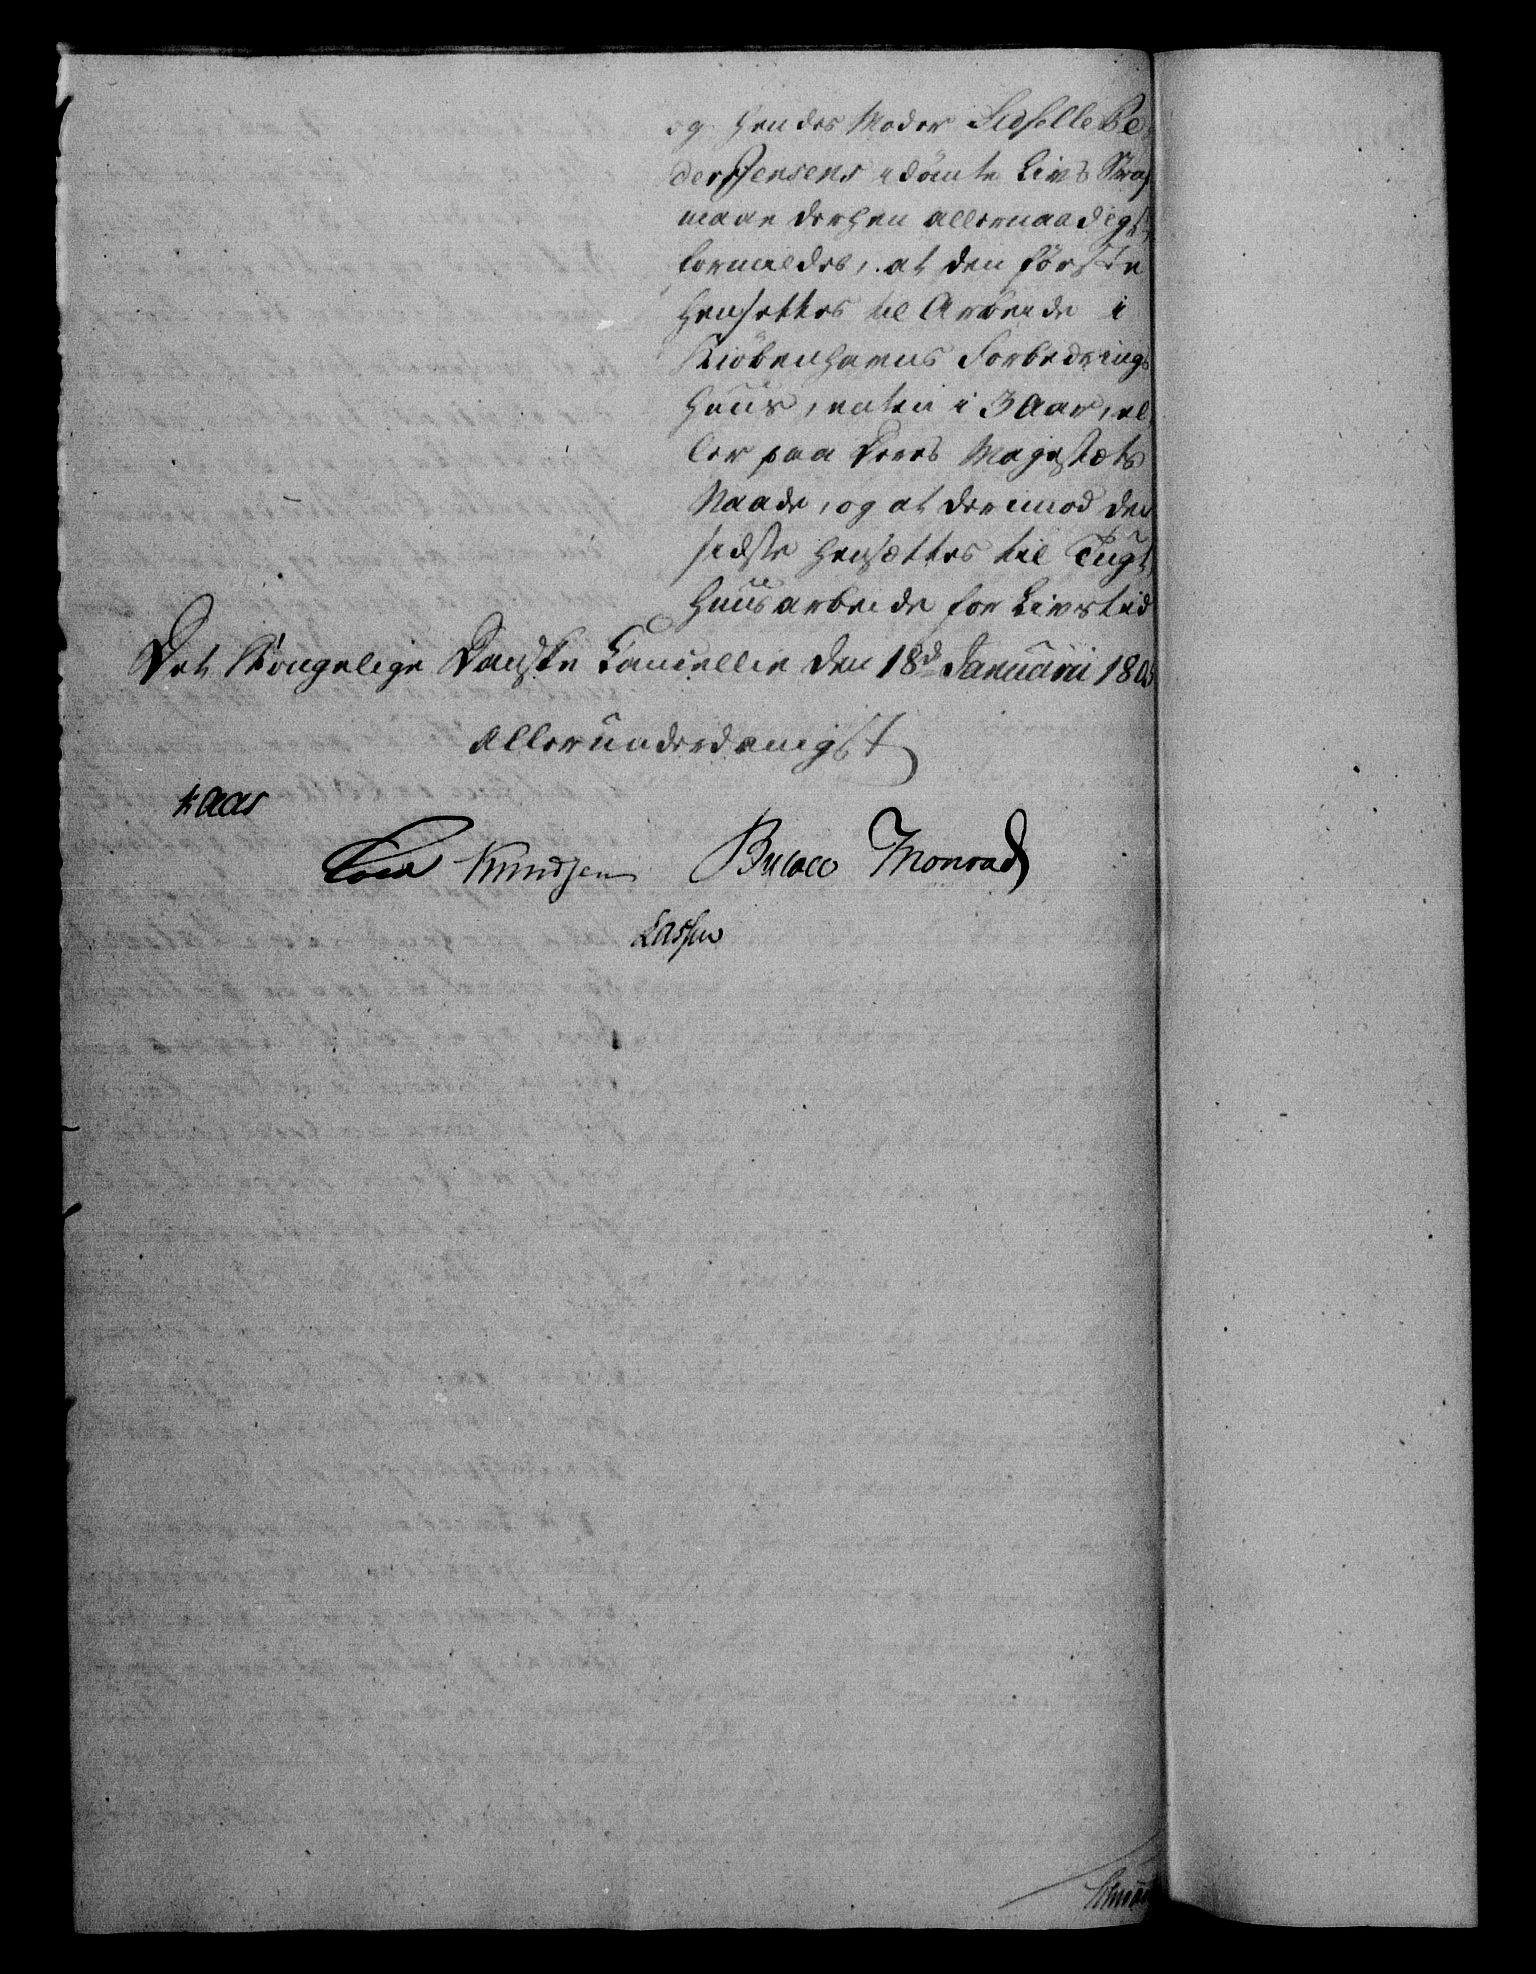 og hendes Moder Sidselle Pe-
der Jensens idömte Livs Straf
maae derhen allernaadigst
formildes, at den förste
hensættes til Arbeide i
Kiöbenhavns Forbedrings
Huus, enten i 3 Aar, el
ler paa Deres Majestæts
Naade, og at derimod den
sidste hensættes til Tugt
huusarbeide for Livstid
Det Kongelige Danske Cancellie den 18d Januarii 180
Allerunderdanigst
Kaas
Knudsen Bülow Monrad
Lassen